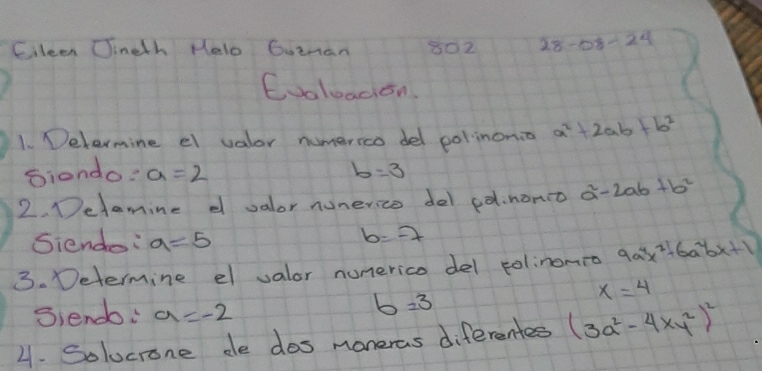 Eileen Jineth Melo Guzman 802 28-08-24
Evaluación.
1. Determine el valor numerico del polinomio a²+2ab+b²
Siendo: a=2 b=3
2. Detemine el valor numerico del polinomio a²-2ab+b²
Siendo: a=5 b=-7
3. Determine el valor numerico del polinomio
Siendo: a=-2 b=3 x=4
4- Solucione de dos maneras diferentes (3a²-4xy²)²